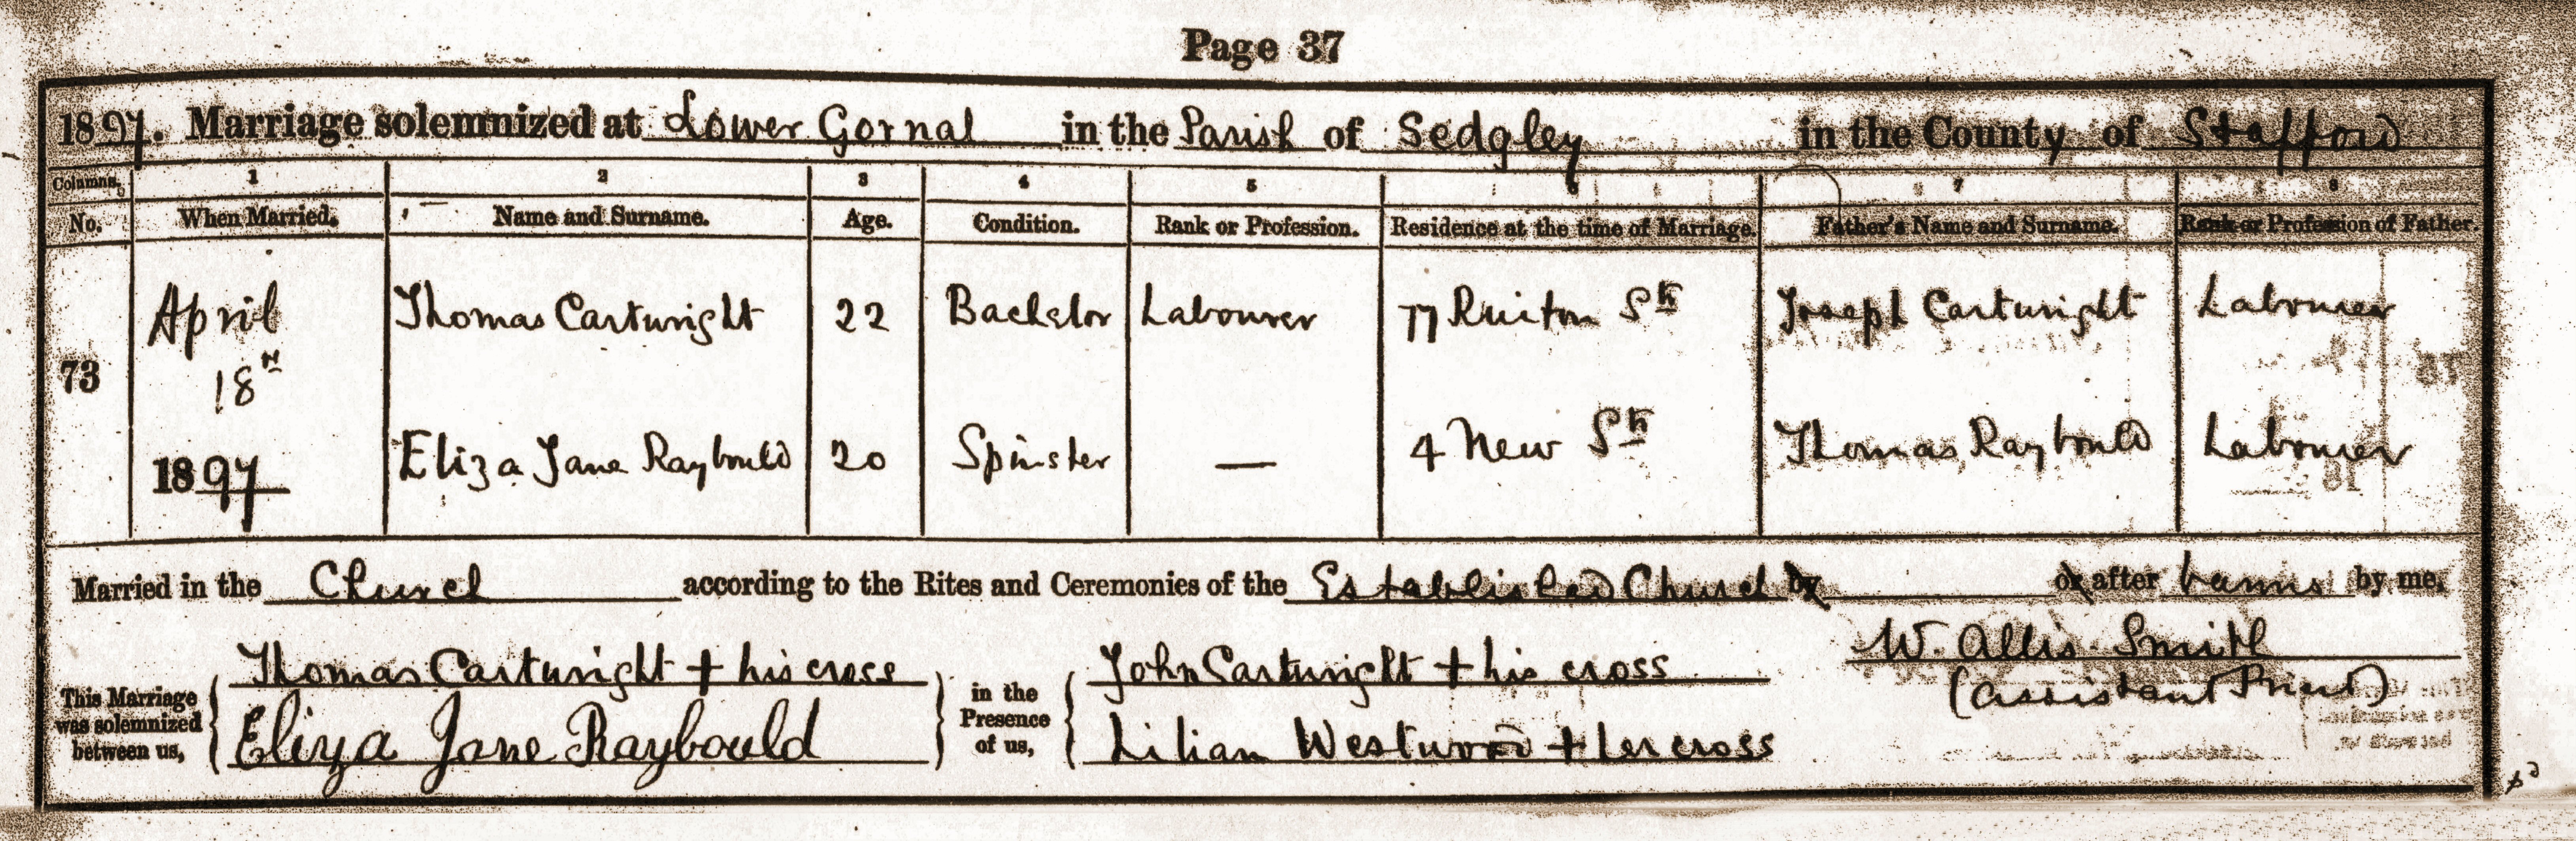 Page 37
1897. Marriage solemnized at Lower Gornal in the Parish of Sedgley in the County of Stafford
Columns. 1 2 3 4 5 6 7 8
No. When Married. Name and Surname. Age. Condition. Rank or Profession. Residence at the time of Marriage. Father's Name and Surname. Rank or Profession of Father.
April Thomas Cartwright 22 Bachelor Labourer 77 Ruiton St Joseph Cartwright Labourer
73 18th
1897 Eliza Jane Raybould 20 Spinster — 4 New St Thomas Raybould Labourer
Married in the Church according to the Rites and Ceremonies of the Established Church by or after banns by me,
Thomas Cartwright + his cross John Cartwright + his cross W. Allis. Smith
This Marriage was solemnized between us, in the Presence of us, (Assistant Priest)
Eliza Jane Raybould Lilian Westwood + her cross